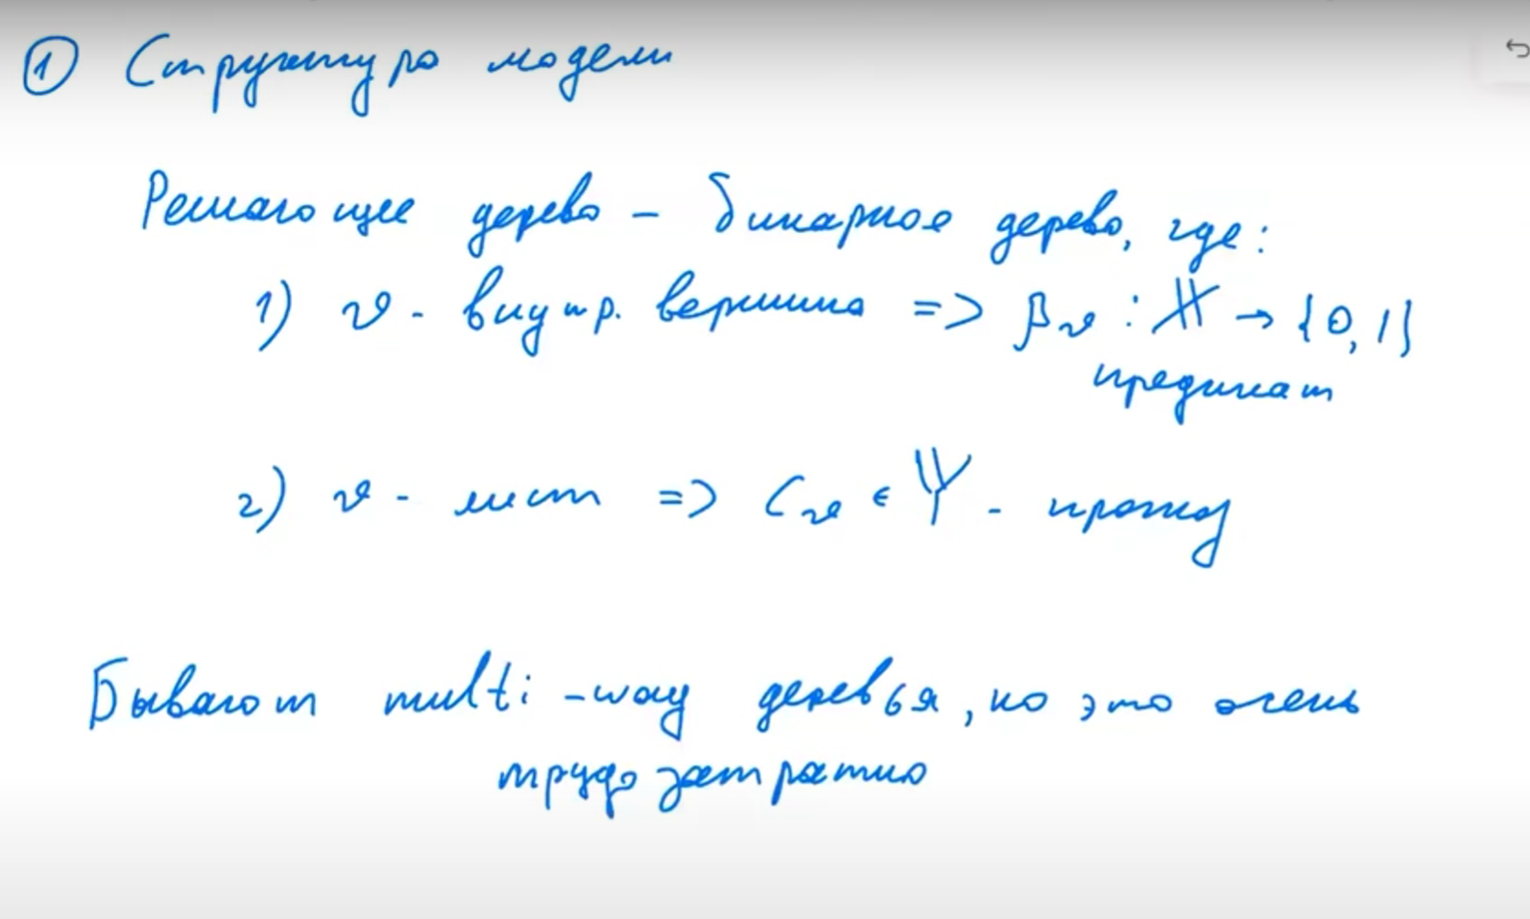 ① Структура модели
Решающее дерево – бинарное дерево, где:
1) v - внутр. вершина => βv : 𝕏 → {0, 1}
предикат
2) v - лист => Cv ∈ 𝕐 - прогноз
Бывают multi-way деревья, но это очень
трудозатратно